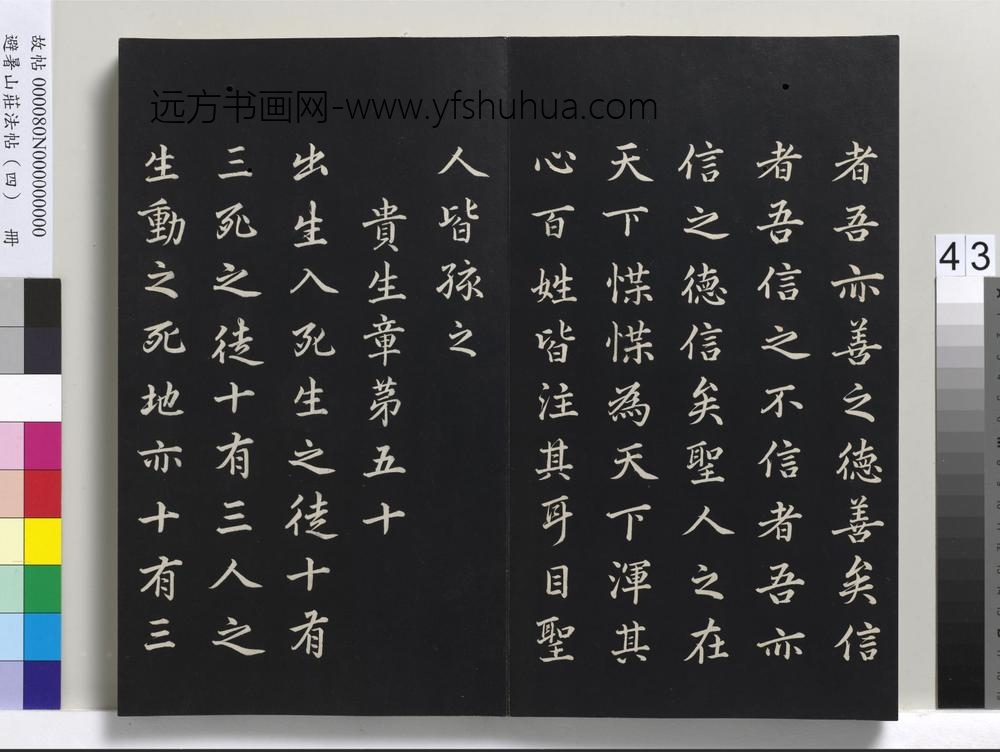 者吾亦善之德善矣信
者吾信之不信者吾亦
信之德信矣聖人之在
天下惵惵為天下渾其
心百姓皆注其耳目聖
人皆孩之
貴生章第五十
出生入死生之徒十有
三死之徒十有三人之
生動之死地亦十有三
远方书画网-www.yfshuhua.com
故帖 000080N000000000
避暑山莊法帖(四) 冊
43